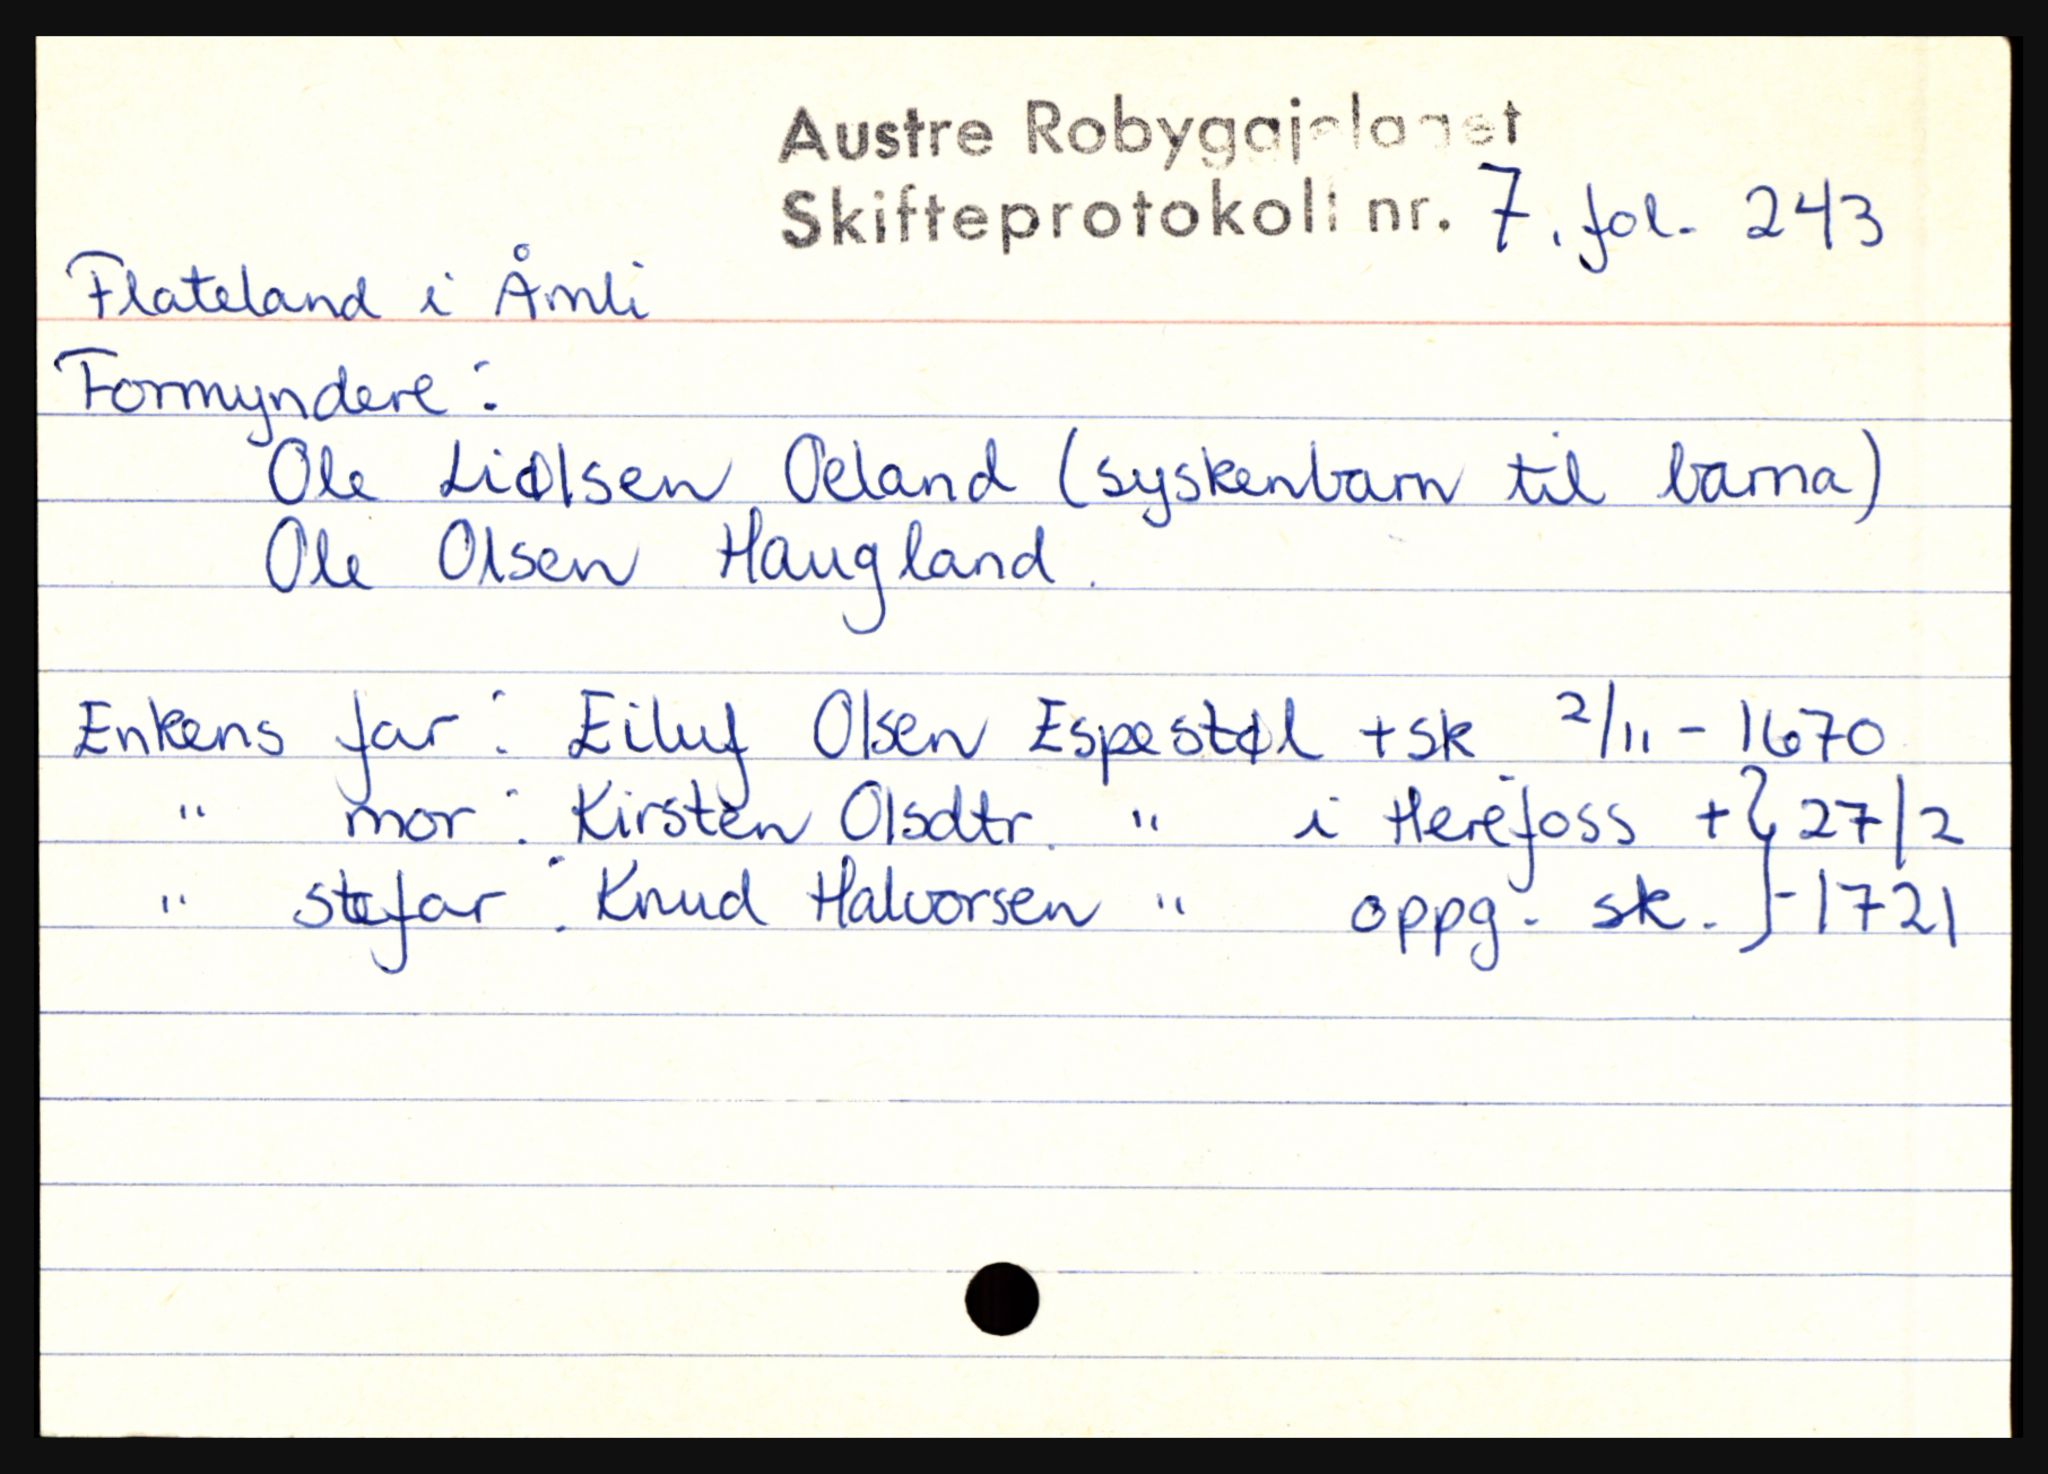 Austre Robygajelaget
Skifteprotokoll nr. 7, fol. 243
Flateland i Åmli
Formyndere:
Ole Liølsen Oeland (syskenbarn til barna)
Ole Olsen Haugland.
Enkens far: Eiluf Olsen Espestøl + sk 2/11 - 1670
" mor: Kirsten Olsdtr. " i Herefoss + } 27/2
" stefar: Knud Halvorsen " oppg. sk. } - 1721